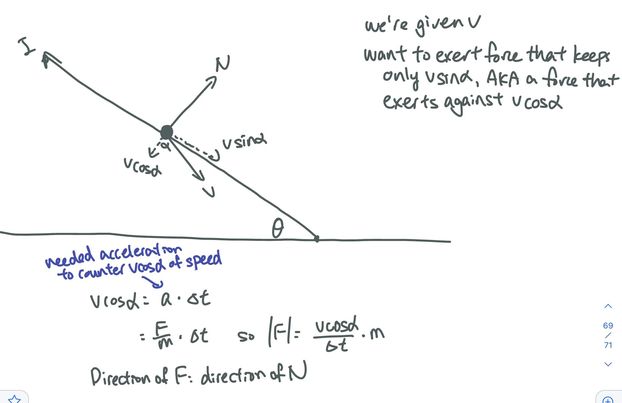 we're given v
want to exert force that keeps
only vsinα, AKA a force that
exerts against vcosα
I
N
vsinα
α
vcosα
v
θ
needed acceleration
to counter vcosα of speed
vcosα = a · Δt
= F/m · Δt so |F| = vcosα/Δt · m
Direction of F: direction of N
69
/
71